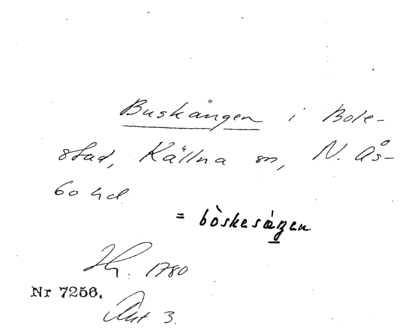 Buskängen i Bole-
stad, Källna sn, N. Ås-
bo hd.
= bòskesáŋen
Hr. 1780
Nr 7256.
Ant 3.